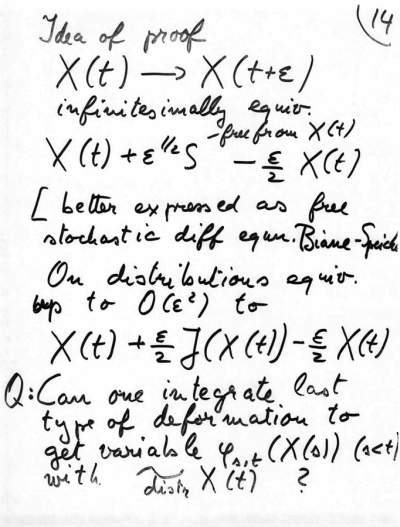 14
Idea of proof
X(t) → X(t+ε)
infinitesimally equiv.
- free from X(t)
X(t) + ε^{1/2} S - ε/2 X(t)
[ better expressed as free
stochastic diff equn. Biane-Speich
On distributions equiv.
up to O(ε²) to
X(t) + ε/2 J(X(t)) - ε/2 X(t)
Q: Can one integrate last
type of deformation to
get variable φ_{s,t}(X(s)) (s<t)
with distr X(t) ?